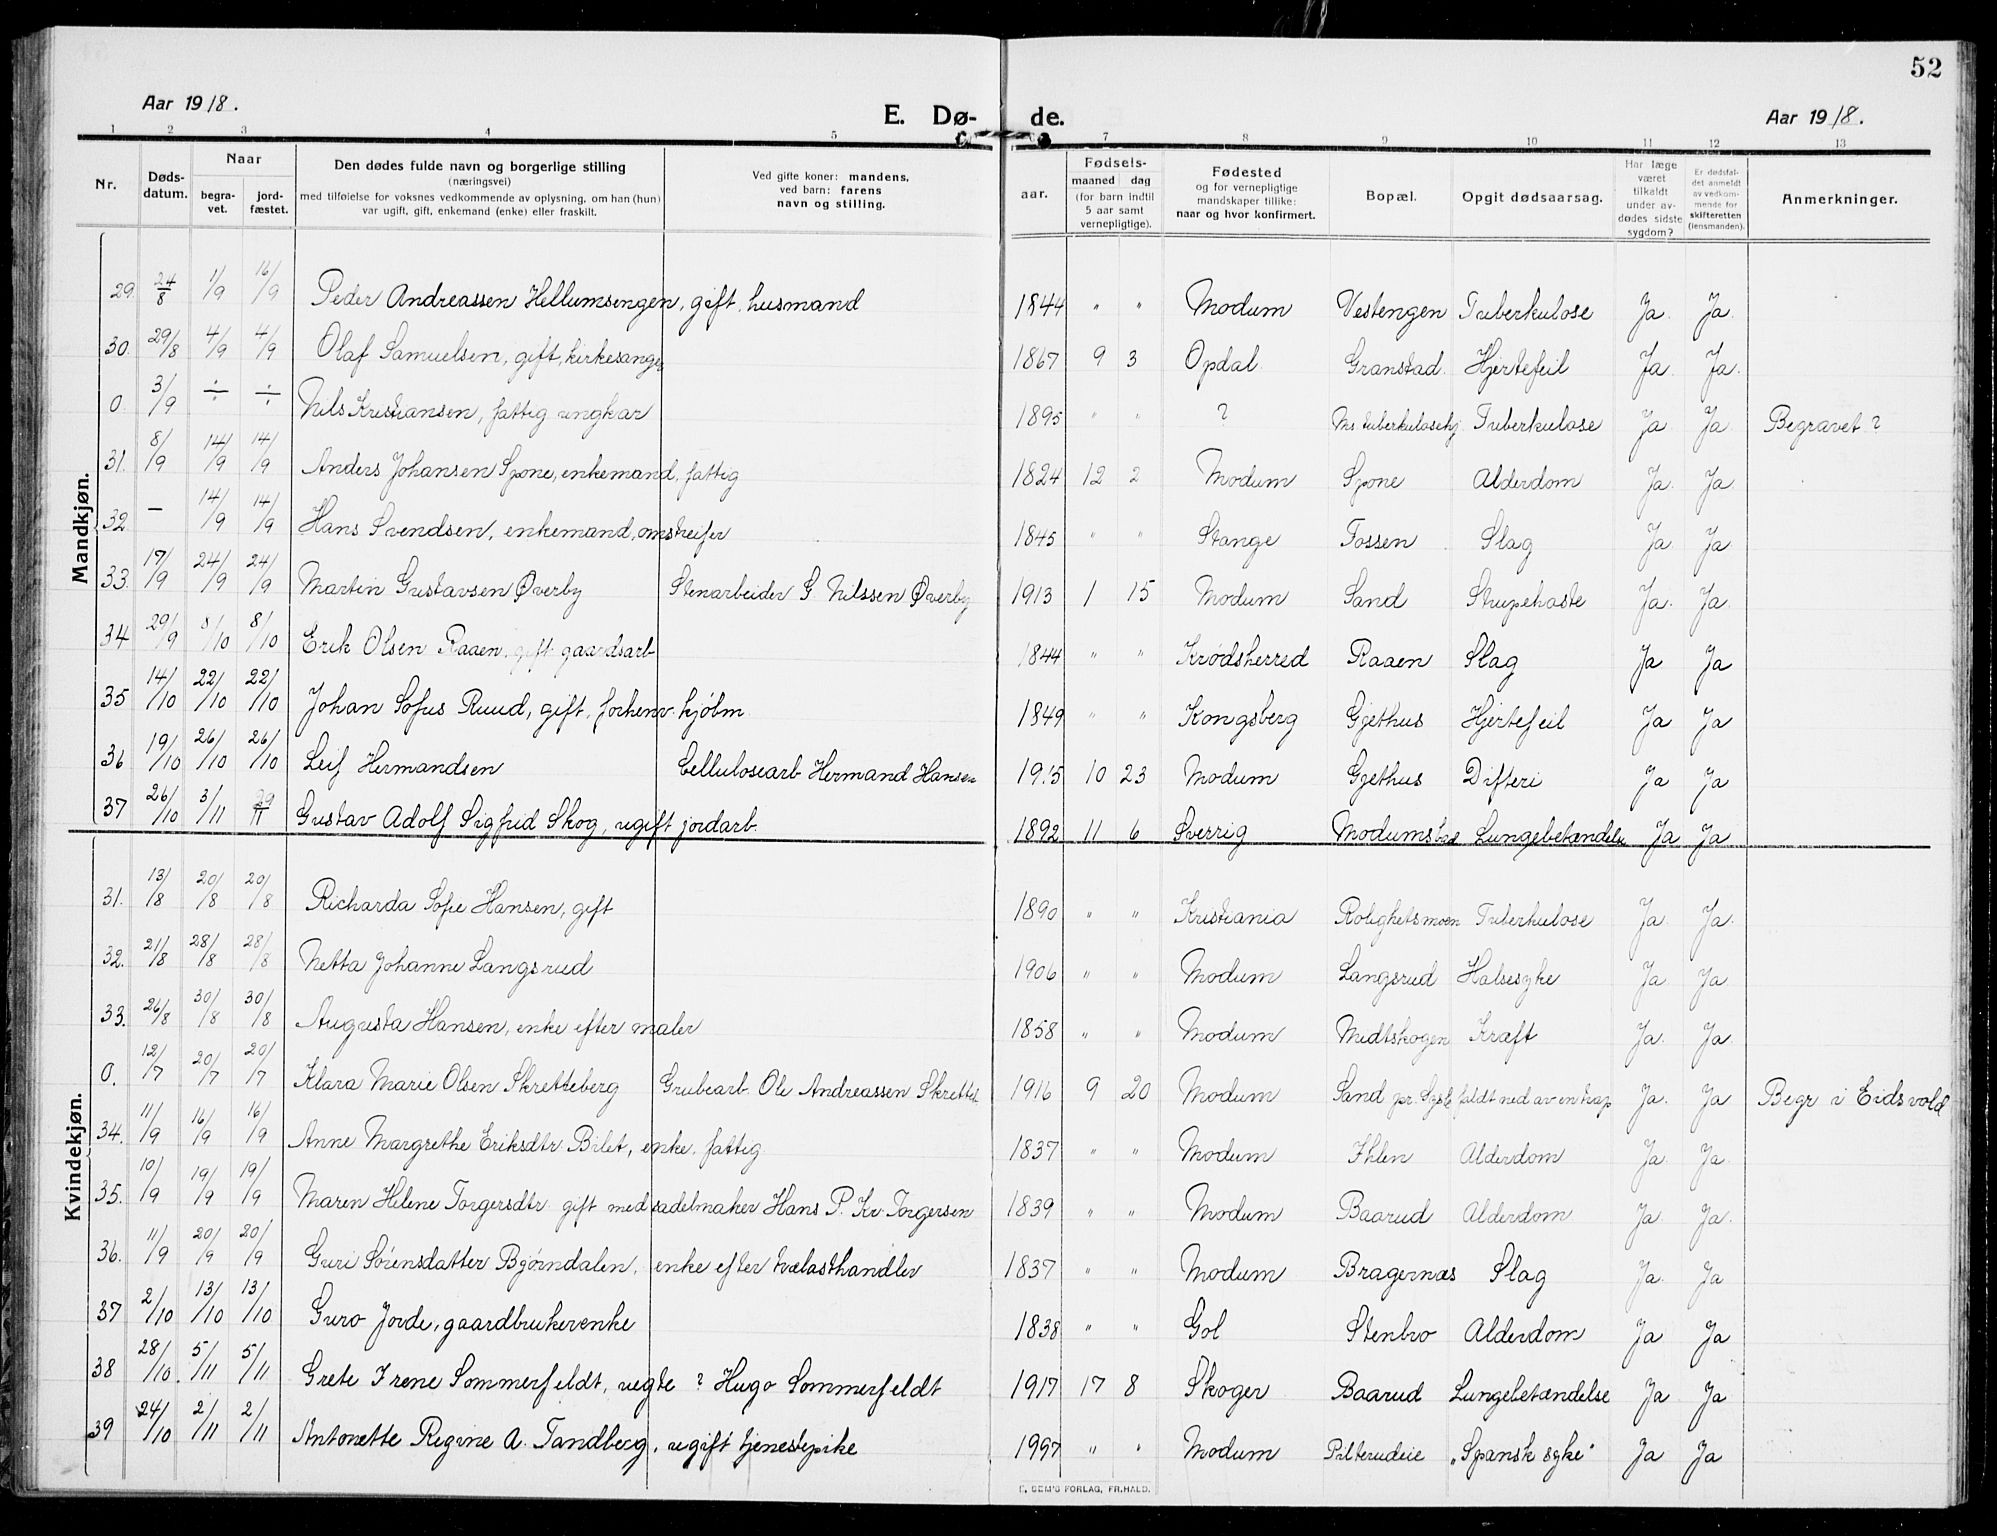 52
Aar 1918. E. Dø- de. Aar 1918.
1 2 3 4 5 7 8 9 10 11 12 13
Nr. Døds-datum. Naar begra-vet. jord-fæstet. Den dødes fulde navn og borgerlige stilling (næringsvei) med tilføielse for voksnes vedkommende av oplysning, om han (hun) var ugift, gift, enkemand (enke) eller fraskilt. Ved gifte koner: mandens, ved barn: farens navn og stilling. aar. Fødsels- maaned dag (for barn indtil 5 aar samt vernepligtige). Fødested og for vernepligtige mandskaper tillike: naar og hvor konfirmert. Bopæl. Opgit dødsaarsag. Har læge været tilkaldt under av-dødes sidste sygdom? Er dødsfal-det anmeldt av vedkom-mende for skifteretten (lensmanden). Anmerkninger.
Mandkjøn.
29 24/8 1/9 16/9 Peder Andreassen Hellumsengen, gift, husmand 1844 " " Modum Vestengen Tuberkulose Ja. Ja.
30. 29/8 4/9 4/9 Olaf Samuelsen, gift, kirkesanger 1867 9 3 Opdal. Granstad. Hjertefeil Ja. Ja.
0. 3/9 ÷ ÷ Nils Kristiansen, fattig ungkar 1895 " " ? Ms tuberkulosehj. Tuberkulose Ja Ja. Begravet?
31. 8/9 14/9 14/9 Anders Johansen Spone, enkemand, fattig 1824 12 2 Modum Spone Alderdom Ja. Ja
32. — 14/9 14/9 Hans Svendsen, enkemand, omstreifer 1845 " " Stange Fossen Slag Ja. Ja
33. 17/9 24/9 24/9 Martin Gustavsen Øverby Stenarbeider G. Nilssen Øverby 1913 1 15 Modum Sand Strupehoste Ja. Ja.
34 29/9 8/10 8/10 Erik Olsen Raaen, gift gaardsarb 1844 " " Krødsherred Raaen Slag Ja Ja
35 14/10 22/10 22/10 Johan Sofus Ruud, gift, forhenv. kjøbm. 1849 " " Kongsberg Gjethus Hjertefeil Ja Ja
36 19/10 26/10 26/10 Leif Hermandsen Cellulosearb Hermand Hansen 1915 10 23 Modum Gjethus Difteri Ja Ja
37 26/10 3/11 29/11 Gustav Adolf Sigfrid Skog, ugift jordarb. 1892 11 6 Sverrig Modumsbad Lungebetændelse Ja Ja
Kvindekjøn.
31. 13/8 20/8 20/8 Richarda Sofie Hansen, gift 1890 " " Kristiania Rolighetsmoen Tuberkulose Ja. Ja.
32. 21/8 28/8 28/8 Netta Johanne Langsrud 1906 " " Modum Langsrud Halsesyke Ja Ja.
33. 26/8 30/8 30/8 Augusta Hansen, enke efter maler 1858 " " Modum Midtskogen Kræft Ja. Ja.
0. 12/7 20/7 20/7 Klara Marie Olsen Skretteberg Grubearb. Ole Andreassen Skretteb. 1916 9 20 Modum Sand pr. Sysle faldt ned av en trap Ja. Ja Begr i Eidsvold
34. 11/9 16/9 16/9 Anne Margrethe Eriksdtr Bilet, enke, fattig 1837 " " Modum Ihlen Alderdom Ja. Ja.
35. 10/9 19/9 19/9 Maren Helene Torgersdtr gift med sadelmaker Hans P. Kr. Torgersen 1839 " " Modum Baarud Alderdom Ja Ja.
36. 11/9 20/9 20/9 Guri Sørensdatter Bjørndalen, enke efter trælasthandler 1837 " " Modum Bragernæs Slag Ja. Ja
37 2/10 13/10 13/10 Guro Jorde, gaardbrukerenke 1838 " " Gol Stenbro Alderdom Ja Ja
38 28/10. 5/11 5/11 Grete Irene Sommerfeldt, uegte ? Hugo Sommerfeldt 1917 17 8 Skoger Baarud Lungebetændelse Ja Ja
39 24/10 2/11 2/11 Antonette Regine A. Tandberg, ugift tjenestepike 1997 " " Modum Pilterudeie „Spansk syke" Ja Ja
E. SEM'S FORLAG, FR.HALD.